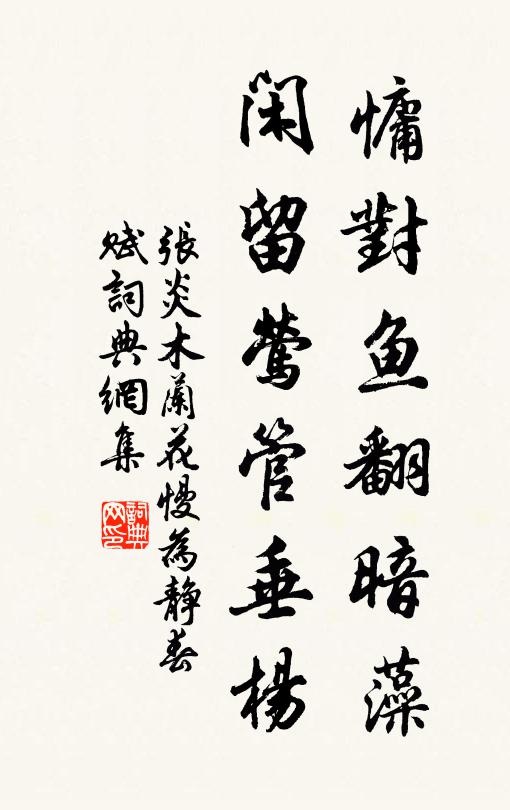 慵對鱼翻暗藻
闲留莺管垂楊
張炎木蘭花慢為静春
賦詞典網集
詞典
网印